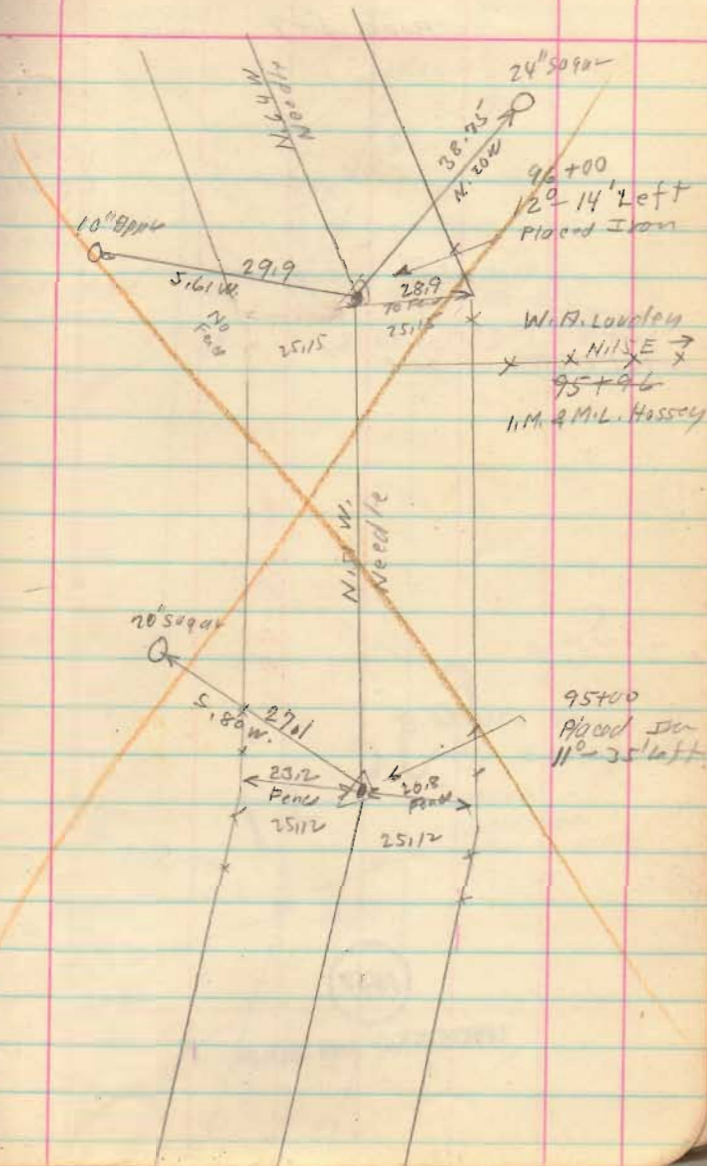 24" Sugar
N. 64 W
Needle
38.75'
N. 20 W
96+00
12°-14' Left
Placed Iron
10"
29.9
S. 61 W.
No
Fence
28.9
To Fence
25.15
25.15
W. A. Louden
N. 15 E →
95+96
I. M. & M. L. Hossey
N. 51 W.
Needle
20" Sugar
S. 80 W.
27.1
95+00
Placed Iron
11°-35' Left
23.2
Fence
20.8
Fence
25.12
25.12